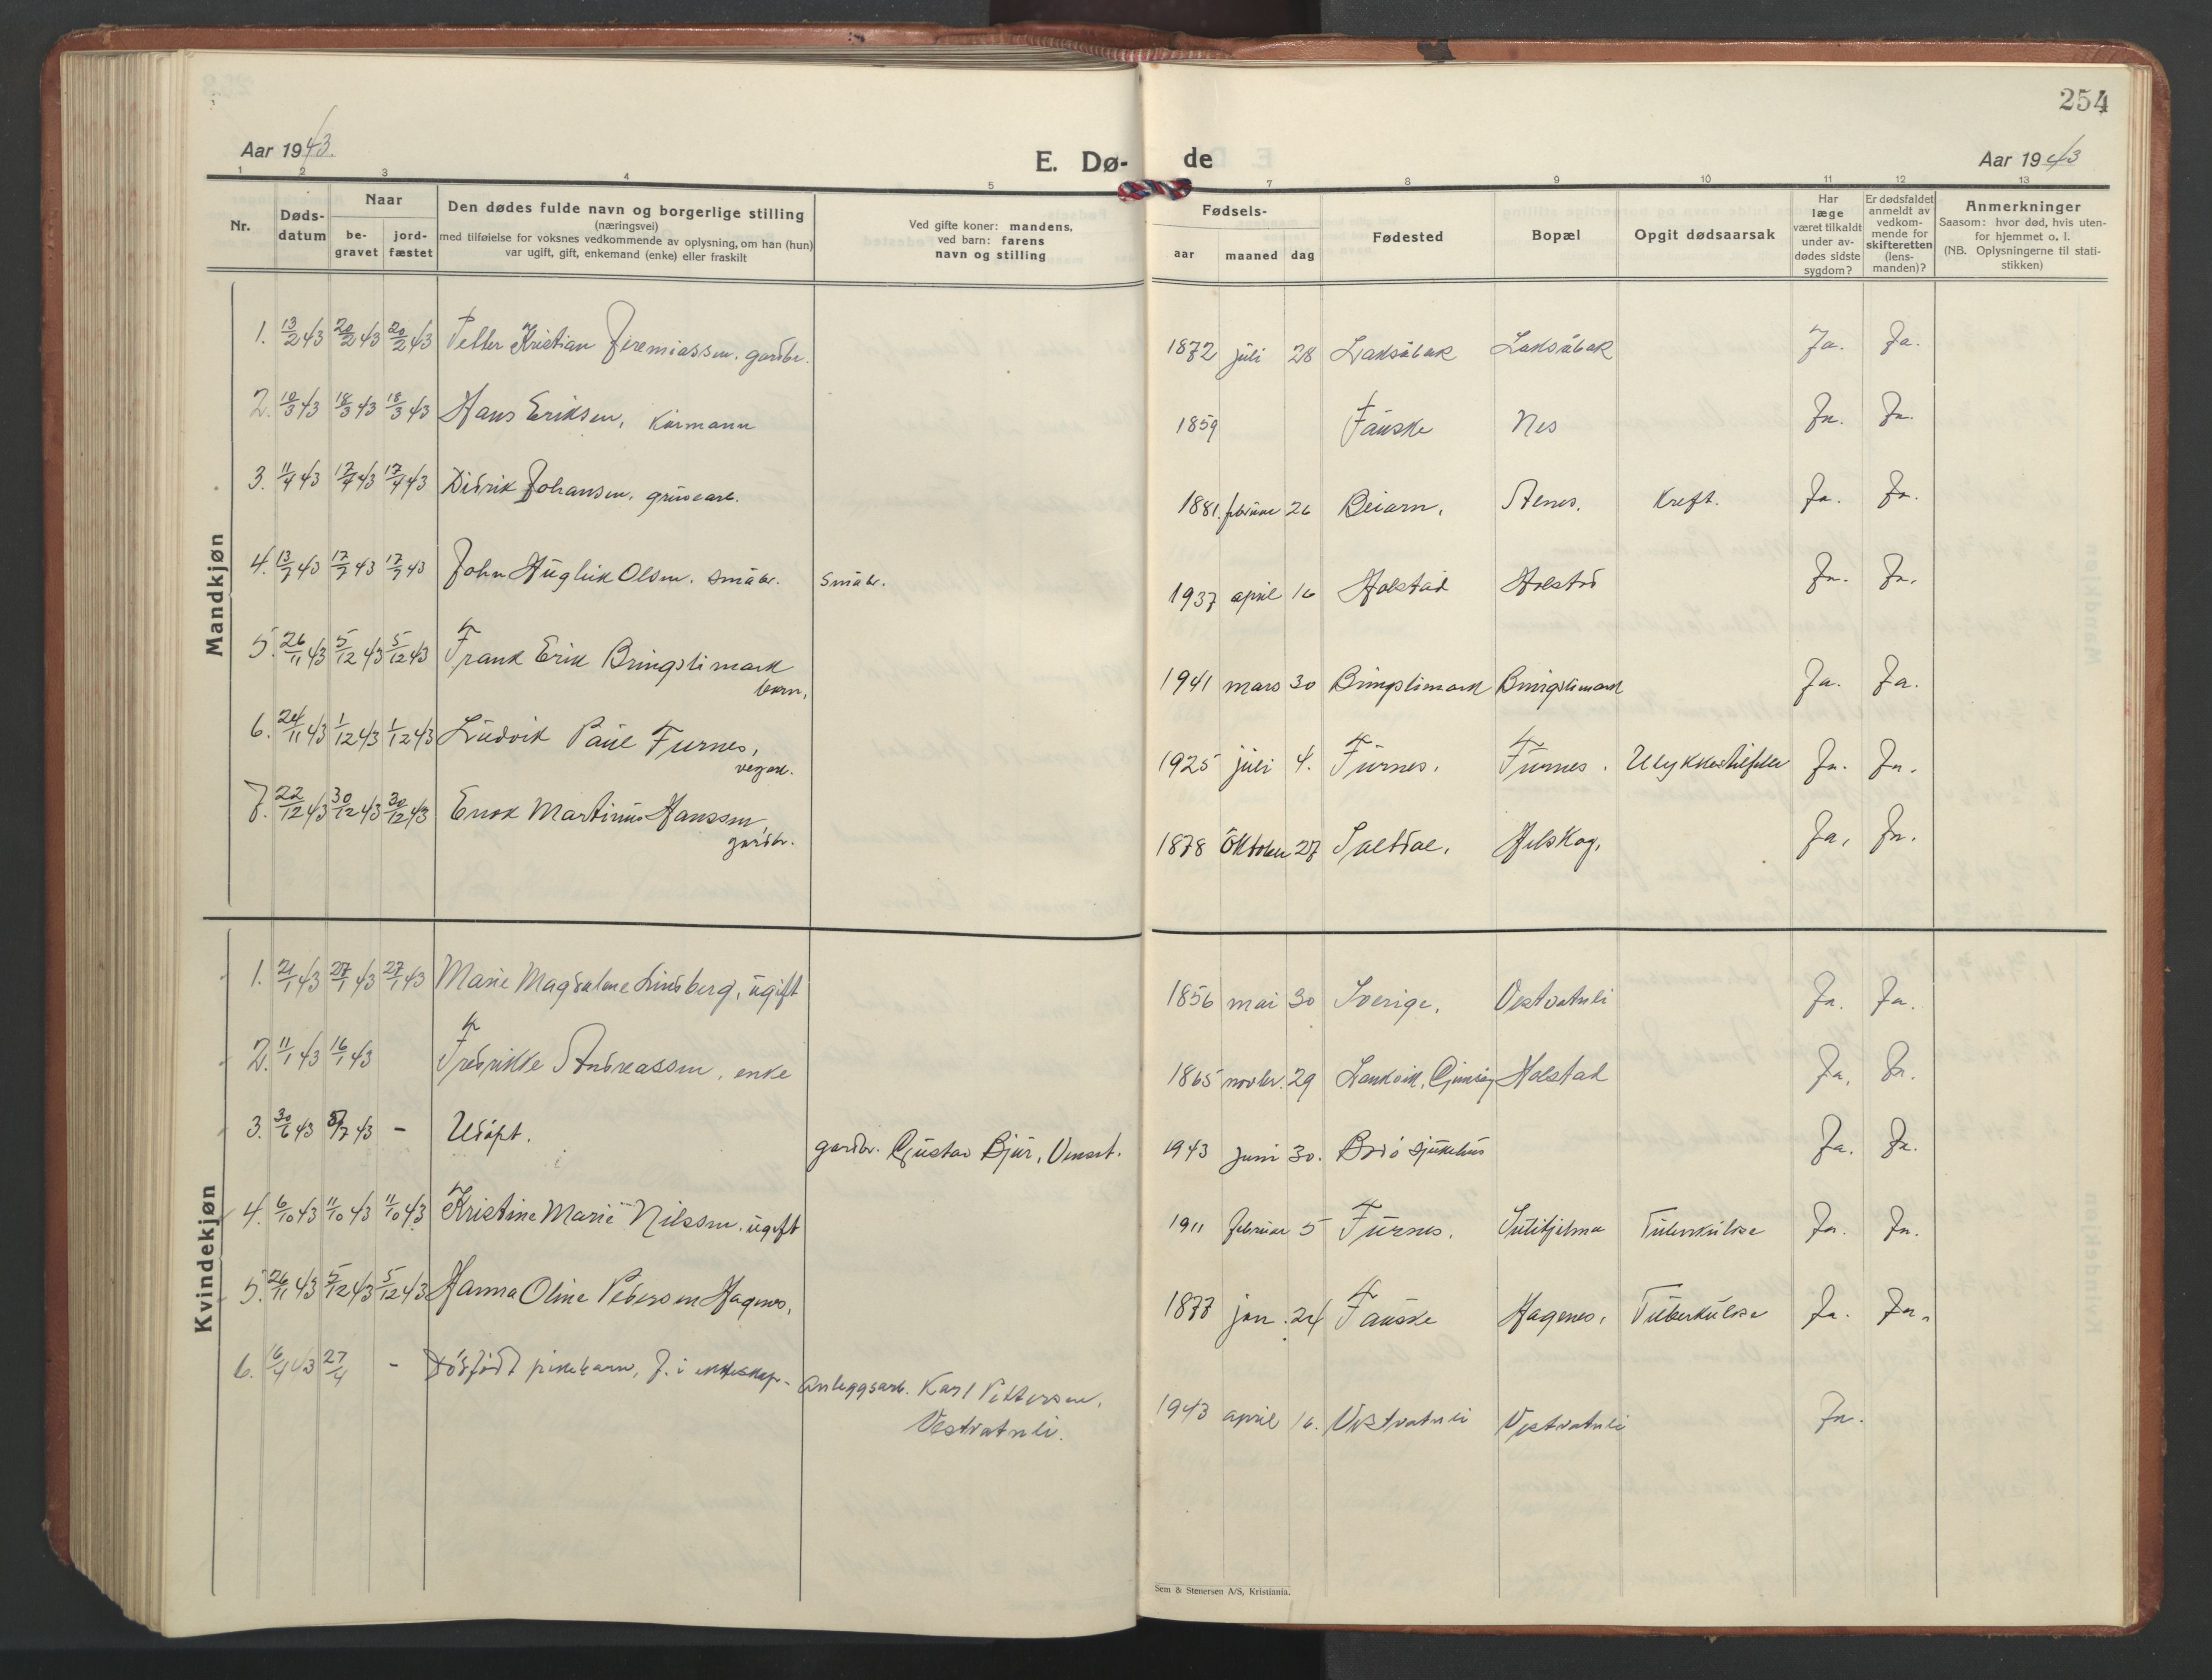 254
Aar 1943.
E. Dø-
de
Aar 1943
1 2 3 4 5 7 8 9 10 11 12 13
Nr.
Døds-
datum
Naar
be-
gravet
jord-
fæstet
Den dødes fulde navn og borgerlige stilling
(næringsvei)
med tilføielse for voksnes vedkommende av oplysning, om han (hun)
var ugift, gift, enkemand (enke) eller fraskilt
Ved gifte koner: mandens,
ved barn: farens
navn og stilling
Fødsels-
aar maaned dag
Fødested
Bopæl
Opgit dødsaarsak
Har
læge
været tilkaldt
under av-
dødes sidste
sygdom?
Er dødsfaldet
anmeldt av
vedkom-
mende for
skifteretten
(lens-
manden)?
Anmerkninger
Saasom: hvor død, hvis uten-
for hjemmet o. l.
(NB. Oplysningerne til stati-
stikken)
Mandkjøn
1. 13/2 43 20/2 43 20/2 43 Petter Kristian Jeremiassen. gardbr. 1872 juli 28 Laksåbak Laksåbak Ja. Ja.
2. 10/3 43 18/3 43 18/3 43 Hans Eriksen, Kårmann 1859 Fauske Nes Ja. Ja.
3. 11/4 43 17/4 43 17/4 43 Didrik Johansen, gruvearb. 1881 februar 26 Beiarn. Stenes. Kreft. Ja. Ja.
4. 13/7 43 17/7 43 17/7 43 John Hugleik Olsen. småbr. småbr. 1937 april 16 Holstad Holstad Ja. Ja.
5. 26/11 43 5/12 43 5/12 43 Frank Erik Bringslimark
barn, 1941 mars 30 Bringslimark Bringslimark Ja. Ja.
6. 24/11 43 1/12 43 1/12 43 Ludvik Paul Furnes,
vegarb. 1925 juli 4. Furnes. Furnes. Ulykkestilfelle Ja. Ja.
7. 22/12 43 30/12 43 30/12 43 Enok Martinus Hanssen,
gardbr. 1878 Oktober 27 Saltdal. Helskog. Ja, Ja.
Kvindekjøn
1. 21/1 43 27/1 43 27/1 43 Marie Magdalene Lindberg, ugift 1856 mai 30 Sverige. Vestvatnli Ja. Ja.
2. 11/1 43 16/1 43 Fredrikke Andreassen, enke 1865 novbr. 29 Holstad Ja, Ja.
3. 30/6 43 5/7 43 - Udöpt. gardbr. Gustav Bjur, Venset. 1943 juni 30. Bodö sjukehus Ja. Ja.
4. 6/10 43 11/10 43 11/10 43 Kristine Marie Nilssen. ugift 1911 februar 5 Furnes. Sulitjelma Tuberkulose Ja. Ja.
5. 26/11 43 5/12 43 5/12 43 Hanna Oline Pedersen Hagenes, 1877 jan. 24 Fauske Hagenes, Tuberkulose Ja. Ja.
6. 16/4 43 27/4 - Dödfödt pikebarn, f. i ekteskap. Anleggsarb. Karl Pettersen,
Vestvatnli. 1943 april 16. Vestvatnli Vestvatnli Ja.
Sem & Stenersen A/S, Kristiania.